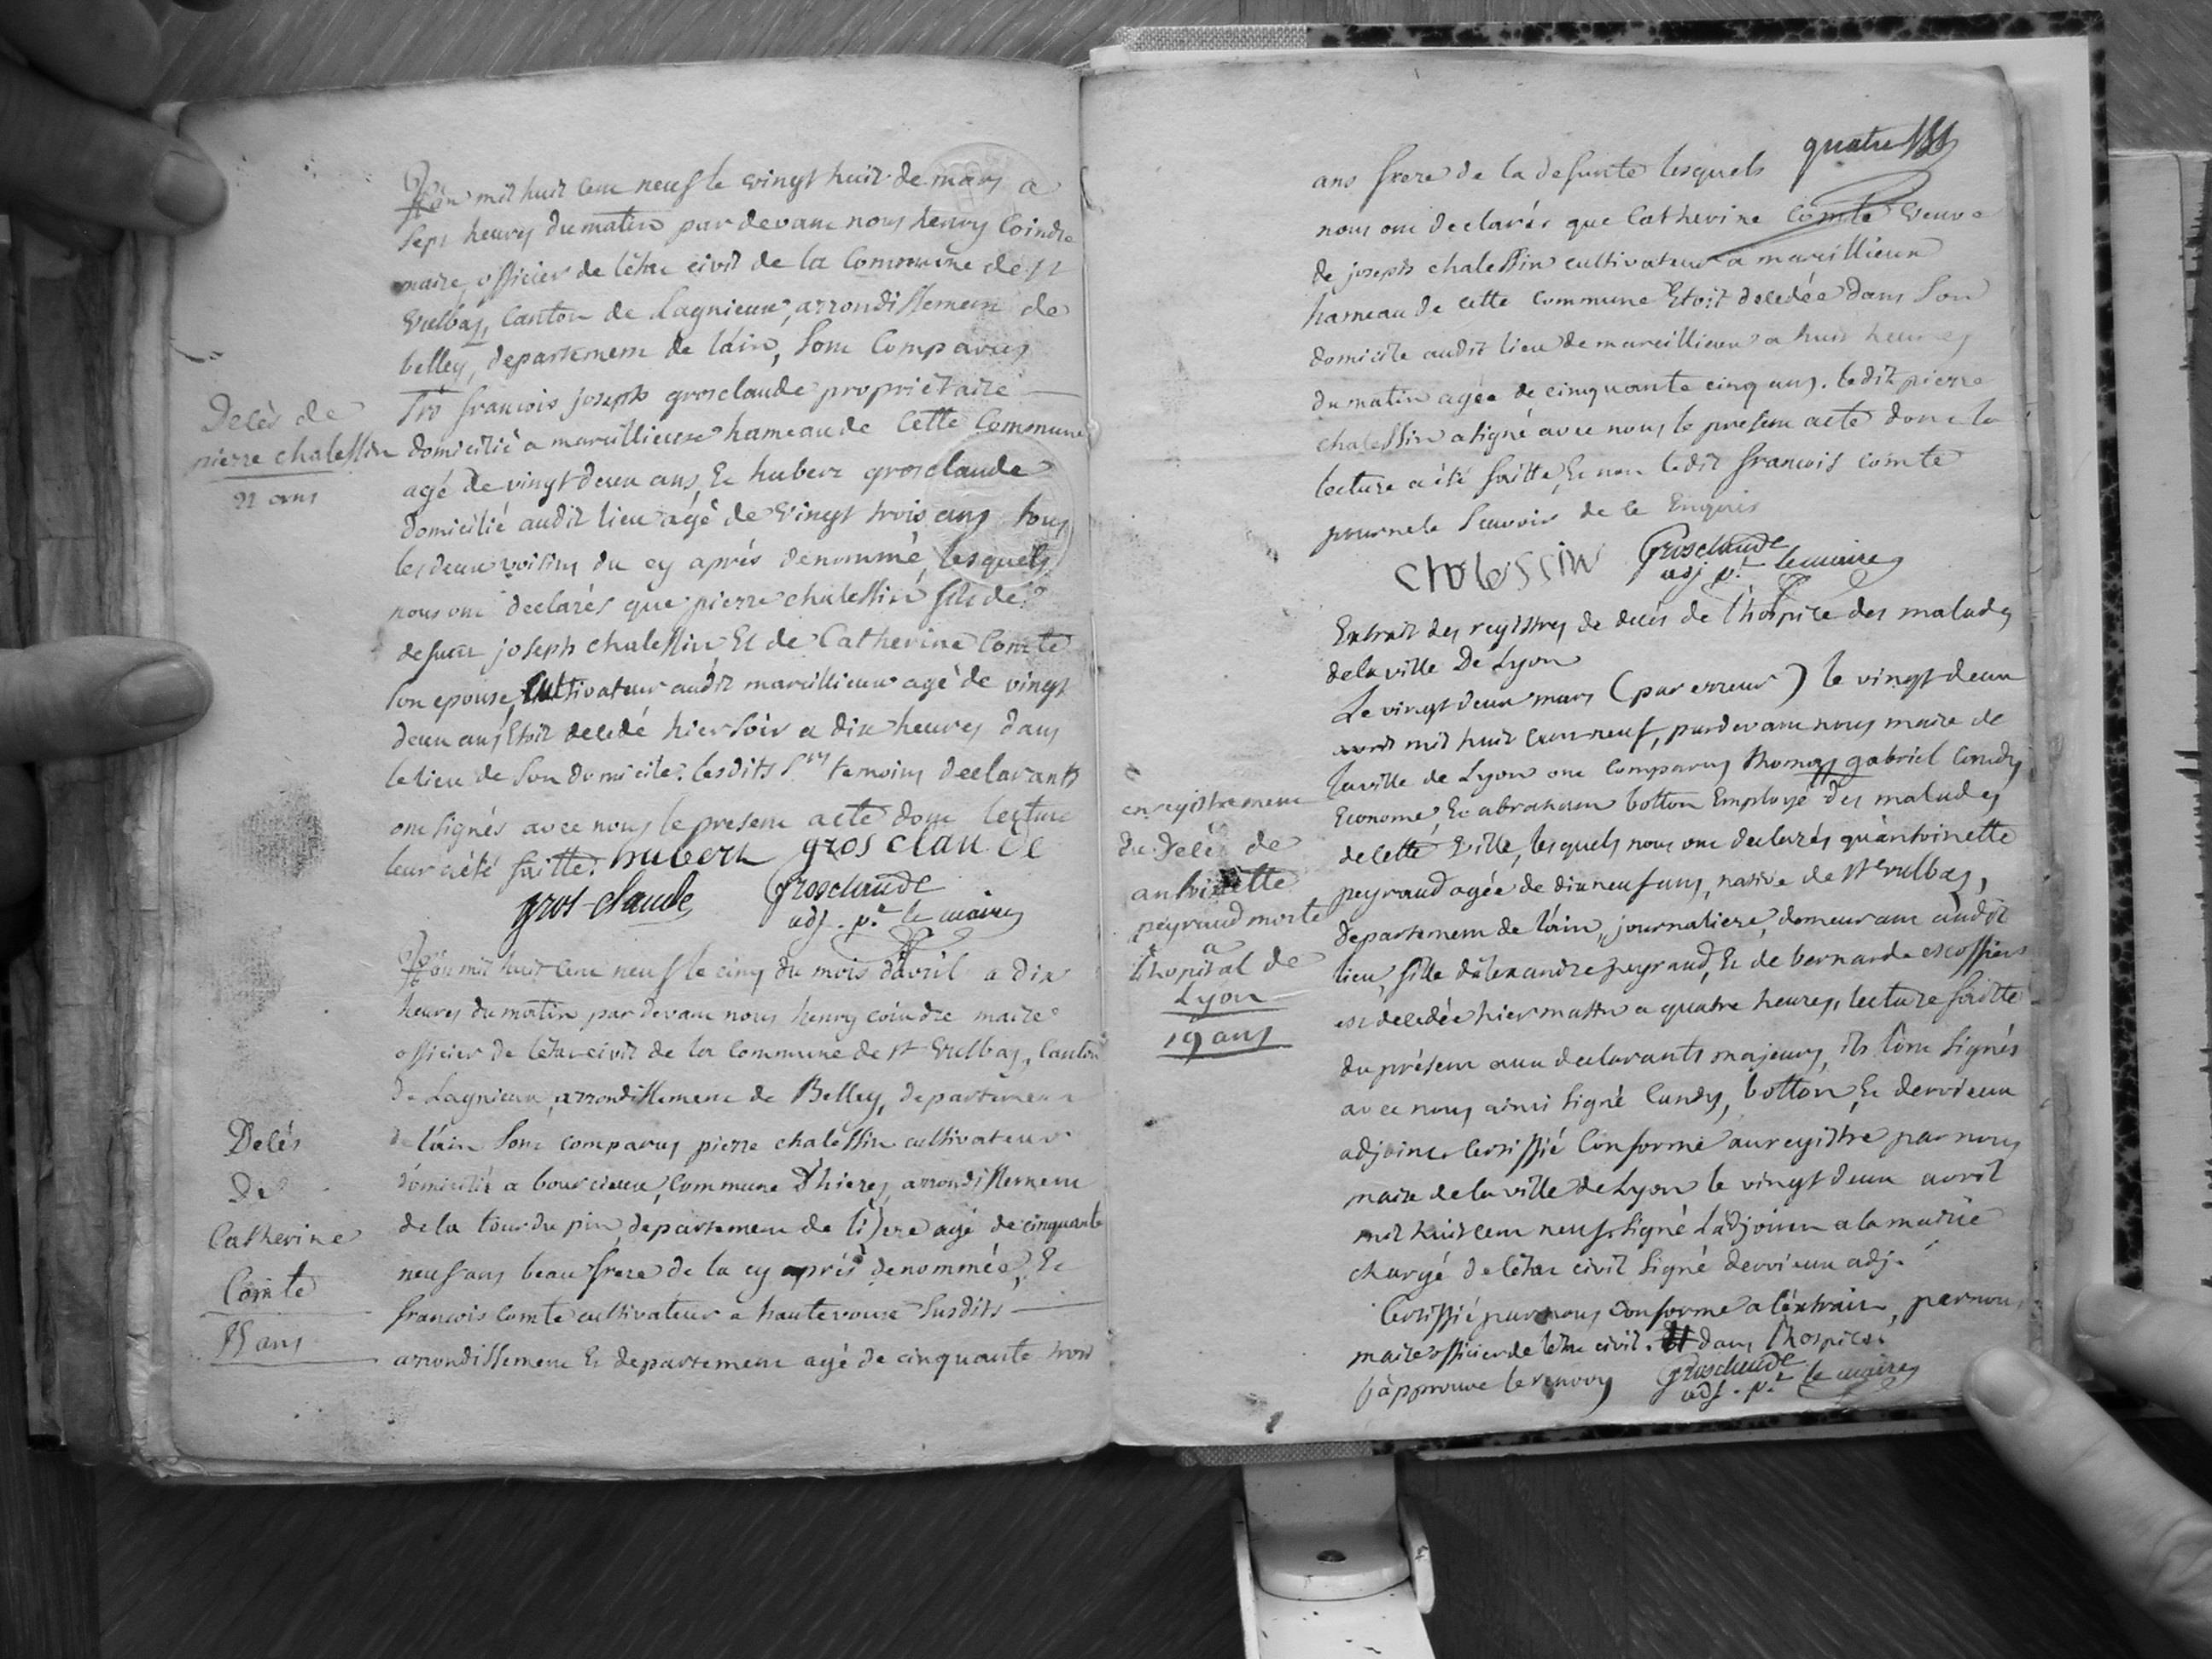 L'an mil huit cent neuf le vingt huit de mars a
sept heures du matin par devant nous henry Coindre
maire, officier de l'état civil de la Commune de st
Vulbas, Canton de Lagnieux, arrondissement de
belley, departement de l'ain, Sont Comparus
francois joseph grosclaude propriétaire
domicilié a marcillieux hameau de Cette Commune
agé de vingt deux ans, Et hubert grosclaude
domicilié audit lieu agé de vingt trois ans tous
les deux voisins du cy aprés denommé, lesquels
nous ont declarés que pierre chalessin fils de
defunt joseph chalessin Et de Catherine Comte
son epouse, Cultivateur audit marcillieux agé de vingt
deux ans Etoit decedé hier soir a dix heures dans
le lieu de son domicile. lesdits Srs temoins declarants
ont signés avec nous le present acte dont lecture
leur a été faitte. hubert gros claude
gros-claude Grosclaude
adj. pr. le maire
Decès de
pierre chalessin
22 ans
L'an mil huit cent neuf le cinq du mois d'avril a dix
heures du matin par devant nous henry coindre maire
officier de l'état civil de la Commune de st Vulbas, Canton
de Lagnieux, arrondissement de Belley, departement
de l'ain Sont comparus pierre chalessin cultivateur
domicilié a bourcieux, Commune d'hieres, arrondissement
de la tour du pin, departement de l'isere agé de cinquante
neuf ans beau frere de la cy aprés denommée, Et
francois comte cultivateur a hautevoure susdits
arrondissement Et departement agé de cinquante trois
Decés
De
Catherine
Comte
55 ans
quatre
ans frere de la defunte lesquels
nous ont declarés que Catherine Comte Veuve
de joseph chalessin cultivateur a marcillieux
hameau de cette commune Etoit decedée dans Son
domicile audit lieu de marcillieux a huit heures
du matin agée de cinquante cinq ans. ledit pierre
chalessin a signé avec nous le present acte dont la
lecture a été faitte, Et non ledit francois comte
pour ne le Scavoir de ce Enquis
cholessin Grosclaude
adj pr. le maire
Extrait des registres de decés de l'hospice des malades
de la ville De Lyon
Le vingt deux mars (par erreur) le vingt deux
avril mil huit cent neuf, pardevant nous maire de
la ville de Lyon ont Comparus thomas gabriel Cundy
Econome, Et abraham botton Employé des malades
de cette Ville, lesquels nous ont declarés qu'antoinette
peyraud agée de dix neuf ans, native de st vulbas,
departement de l'ain, journaliere, demeurant audit
lieu, fille d'alexandre peyraud, Et de bernarde escoffier
est decedée hier matin a quatre heures, lecture faitte
du présent aux declarants majeurs, ils l'ont signés
avec nous, ainsi signé Cundy, botton, Et dervieux
adjoint. Certiffié Conforme au registre par nous
maire de la ville de Lyon le vingt deux avril
mil huit cent neuf. signé L'adjoint a la mairie
chargé de l'état civil signé dervieux adj.
Certiffié par nous conforme a l'extrait, par nous
maire officier de l'état civil. dans l'hospice.
j'approuve le renvoy Grosclaude
adj. pr. le maire
enregistrement
du Decés de
antoinette
peyraud morte
a
l'hopital de
Lyon
19 ans